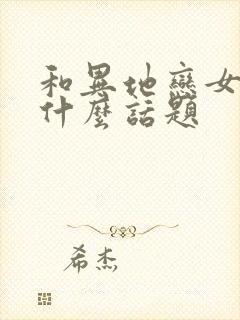 和異地戀女
什麼話題
希杰